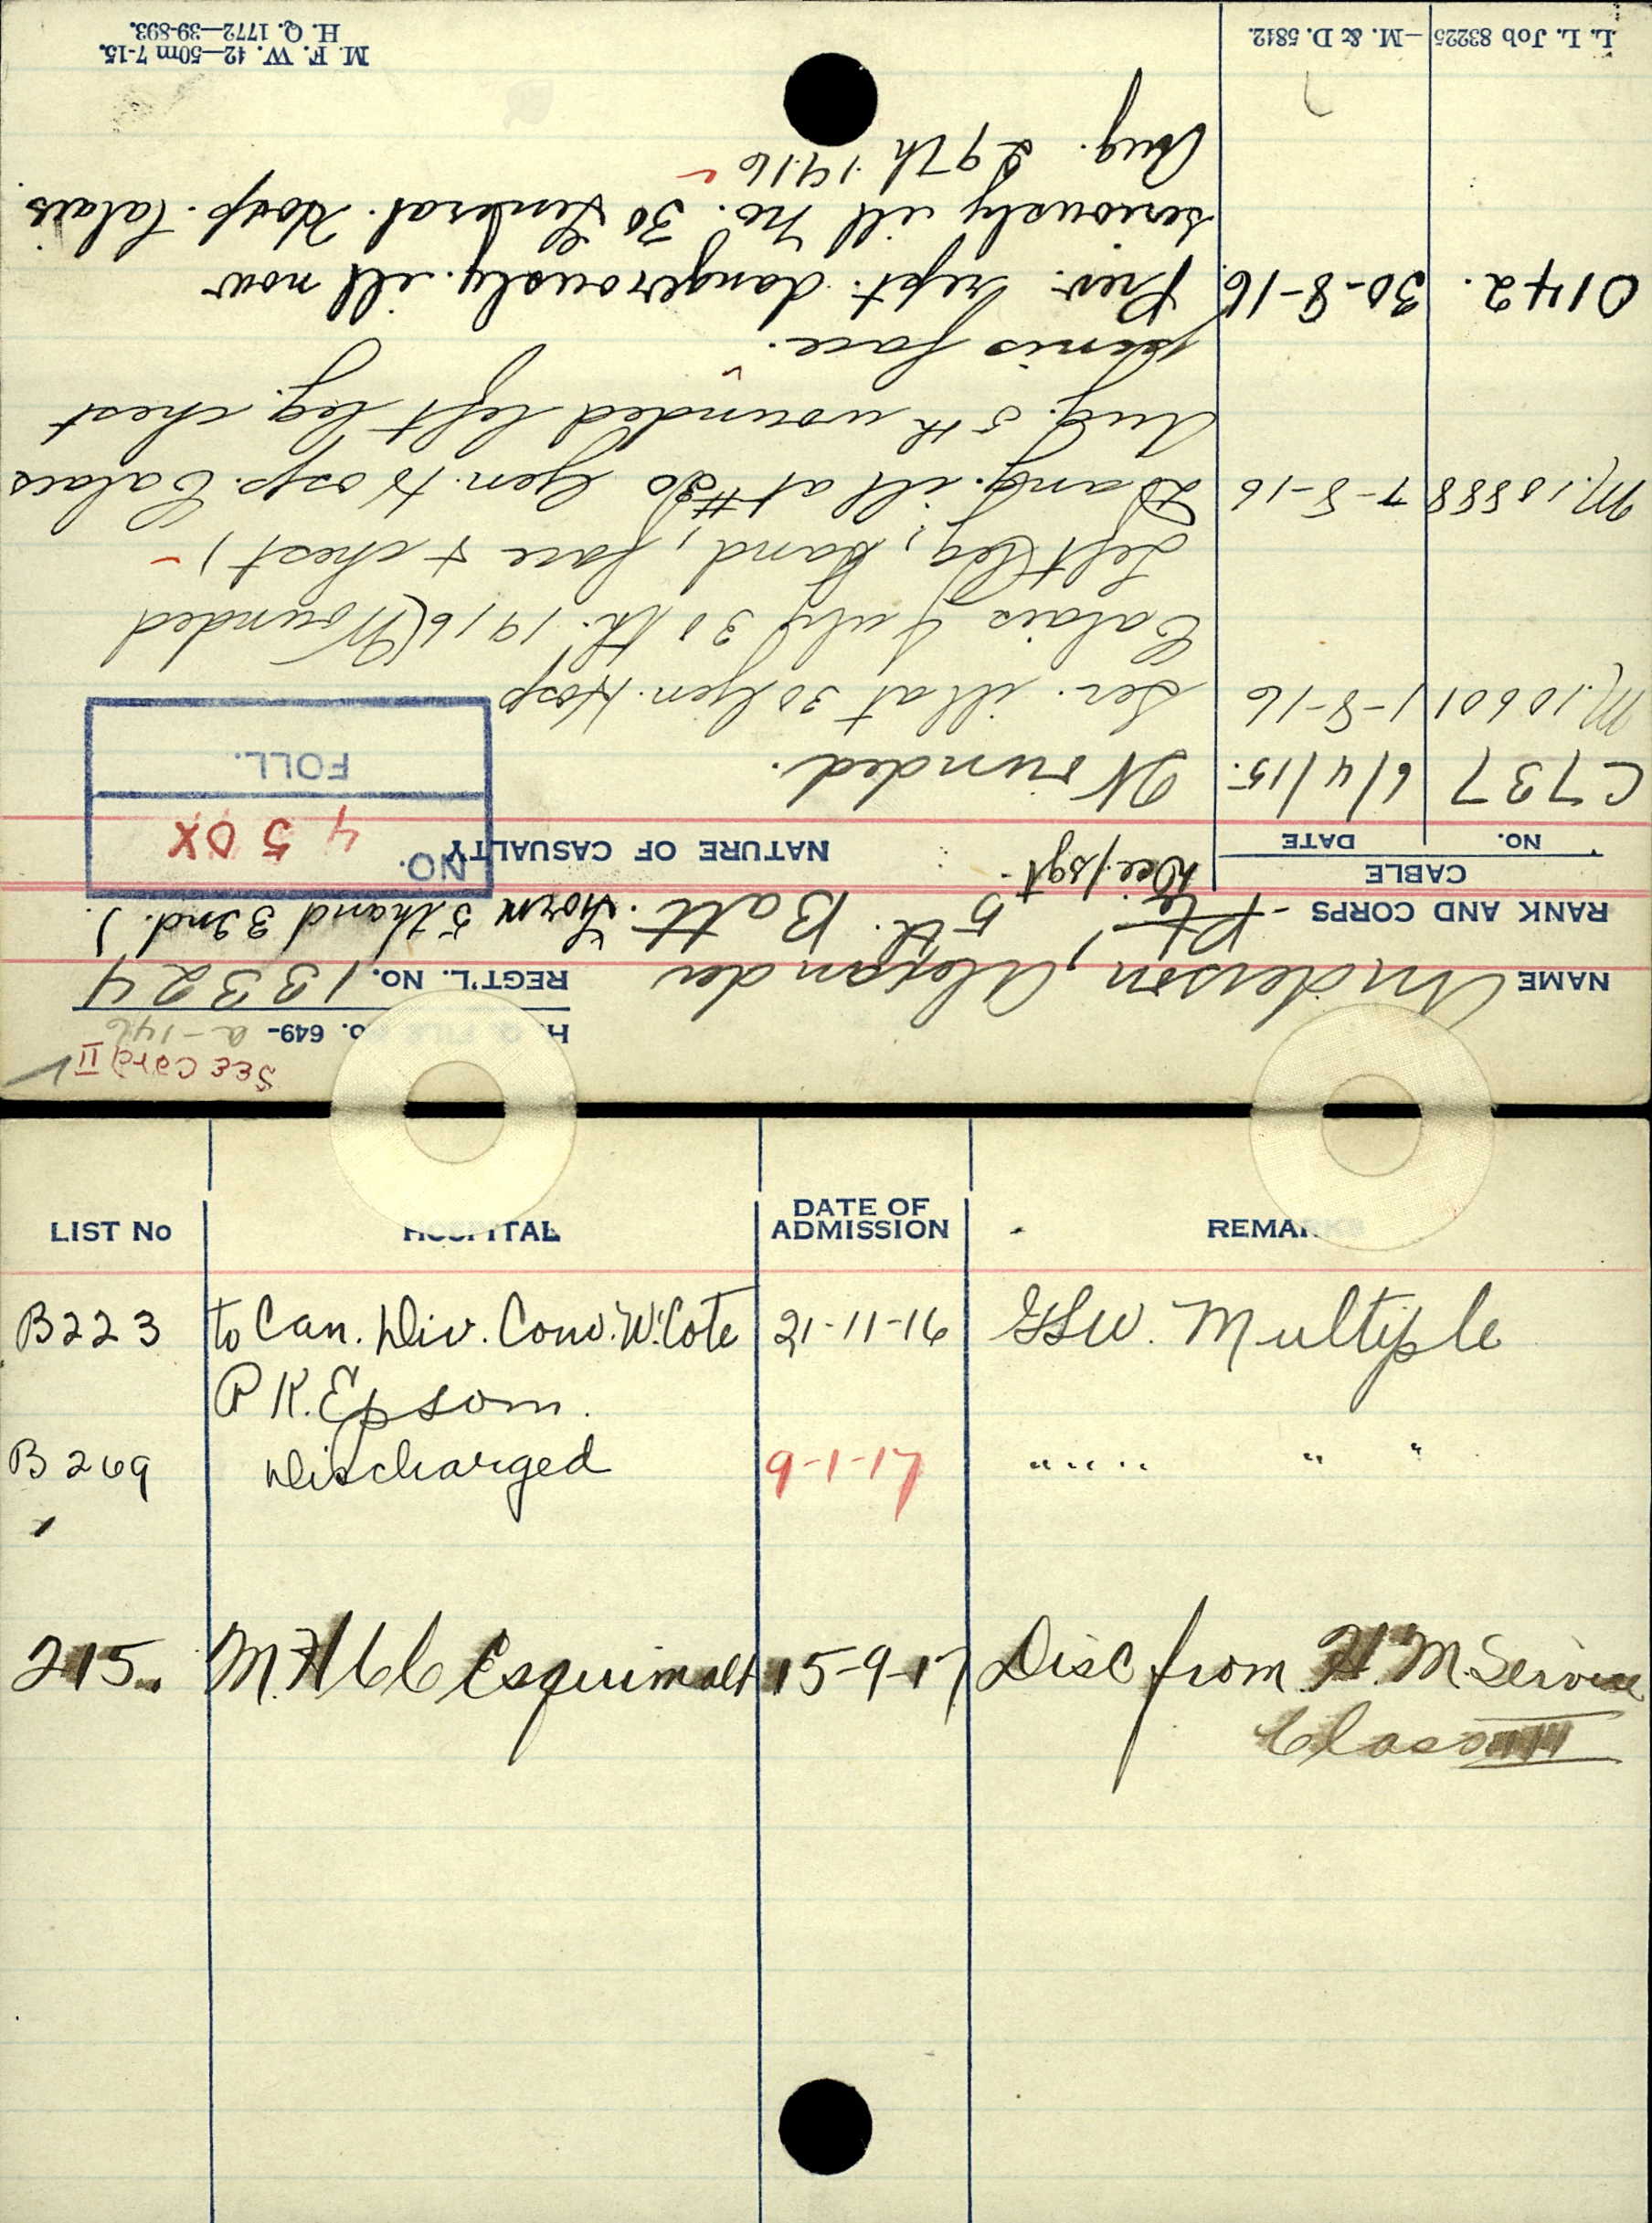 See Card II
H. Q. FILE No. 649- a-146
NAME Anderson, Alexander REGT'L. No. 13324
RANK AND CORPS Pte 5th. Batt. (from 5th and 32nd.)
Sgt.
CABLE
NO. DATE NATURE OF CASUALTY
NO. 450X
FOLL.
C737 6/4/15. Wounded.
M.10601 1-8-16 Ser. ill at 30 Gen. Hosp
Calais July 30th. 1916 (Wounded
Left leg, hand, face & chest)
M.10888 7-8-16 Dang. ill at #30 Gen. Hosp. Calais
Aug. 5th wounded left leg. chest
penis face.
0142. 30-8-16. Prev. rept. dangerously. ill now
seriously ill No. 30 General. Hosp. Calais.
Aug. 29th 1916
M. F. W. 42—50m 7-15.
H. Q. 1772—39-893.
L. L. Job 83225—M. & D. 5842.
LIST No HOSPITAL DATE OF ADMISSION REMARKS
B223 to Can. Div. Conv. W. Cote 21-11-16 GSW. Multiple
P K. Epsom.
B269 Discharged 9-1-17 " " " " "
215. M.H.C.C Esquimalt 15-9-17 Disc from H.M. Service
Class III